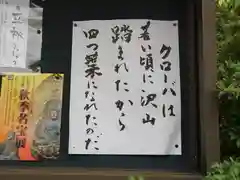 クローバは
暑い頃に沢山
踏まれたから
四つ葉になれたのだ
秋季名宝展